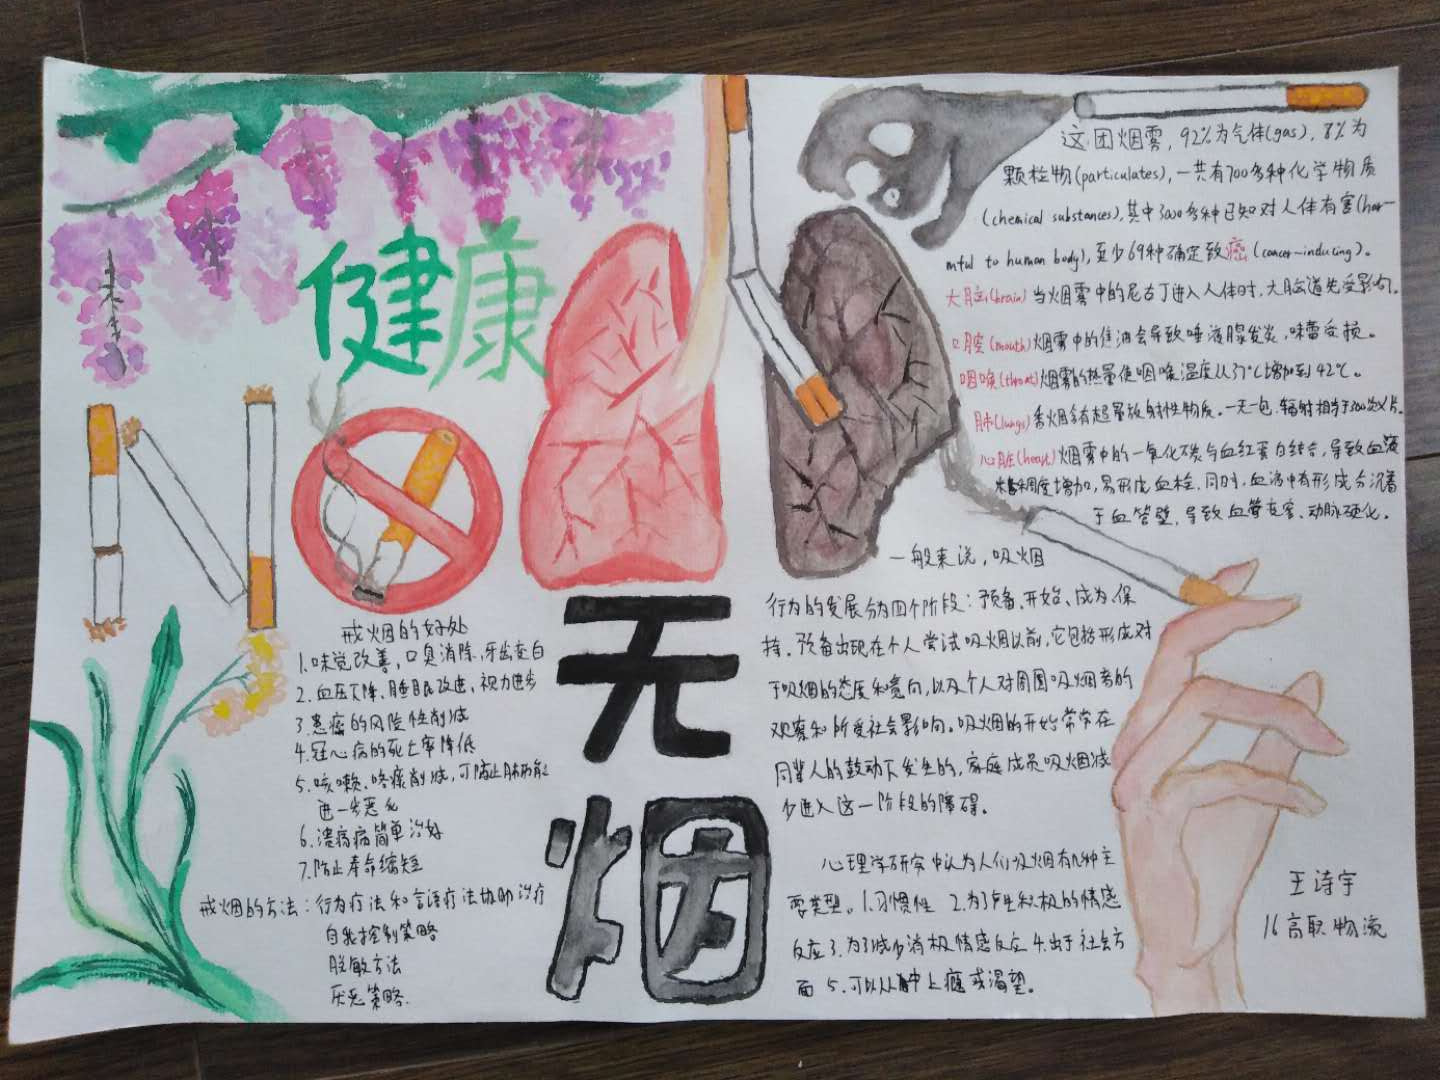 健康
NO
无
烟
这团烟雾，92%为气体(gas)，8%为
颗粒物(particulates),一共有700多种化学物质
(chemical substances),其中3000多种已知对人体有害(har-
mful to human body),至少69种确定致癌(cancer-inducing)。
大脑(brain)当烟雾中的尼古丁进入人体时,大脑首先受影响。
口腔(mouth)烟雾中的焦油会导致唾液腺发炎,味蕾受损。
咽喉(throat)烟雾的热量使咽喉温度从37℃增加到42℃。
肺(lungs)香烟含有超量放射性物质。一天一包,辐射相当于300次X片。
心脏(heart)烟雾中的一氧化碳与血红蛋白结合,导致血液
粘稠度增加,易形成血栓.同时,血液中有形成分沉着
于血管壁,导致血管变窄、动脉硬化。
一般来说,吸烟
行为的发展分为四个阶段:预备、开始、成为、保
持。预备出现在个人尝试吸烟以前,它包括形成对
于吸烟的态度和意向,以及个人对周围吸烟者的
观察和所受社会影响。吸烟的开始常常在
同辈人的鼓动下发生的,家庭成员吸烟减
少进入这一阶段的障碍。
心理学研究中认为人们吸烟有几种主
要类型。1.习惯性 2.为了产生积极的情感
反应 3.为了减少消极情感反应 4.出于社会方
面 5.可以从中上瘾或渴望。
戒烟的好处
1.味觉改善,口臭消除,牙齿变白
2.血压下降、睡眠改进、视力进步
3.患癌的风险性削减
4.冠心病的死亡率降低
5.咳嗽、咯痰削减,可防止肺功能
进一步恶化
6.溃疡病简单治好
7.防止寿命缩短
戒烟的方法:行为疗法和言语疗法协助治疗
自我控制策略
脱敏方法
厌恶策略.
王诗宇
16高职物流